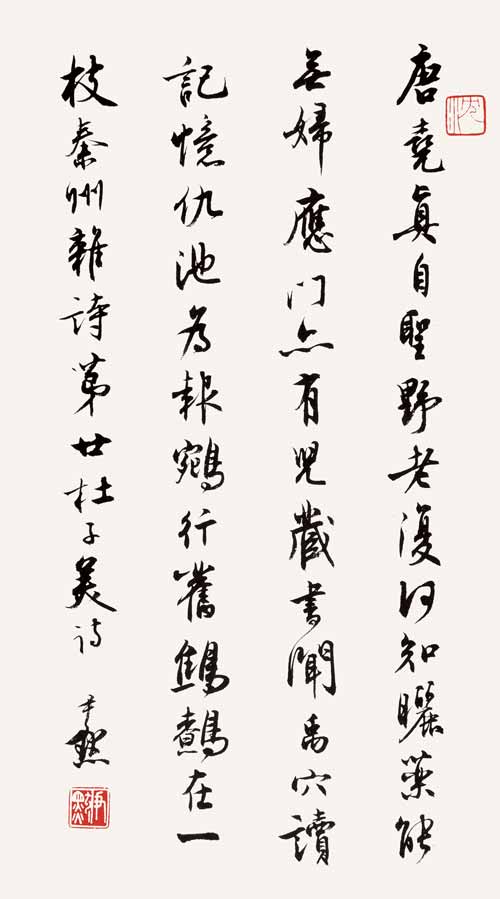 沈
唐堯眞自聖野老復何知曬藥能
無婦應門亦有兒藏書聞禹穴讀
記憶仇池為報鵷行舊鷦鷯在一
枝秦州雜詩第廿杜子美詩 尹默
尹默